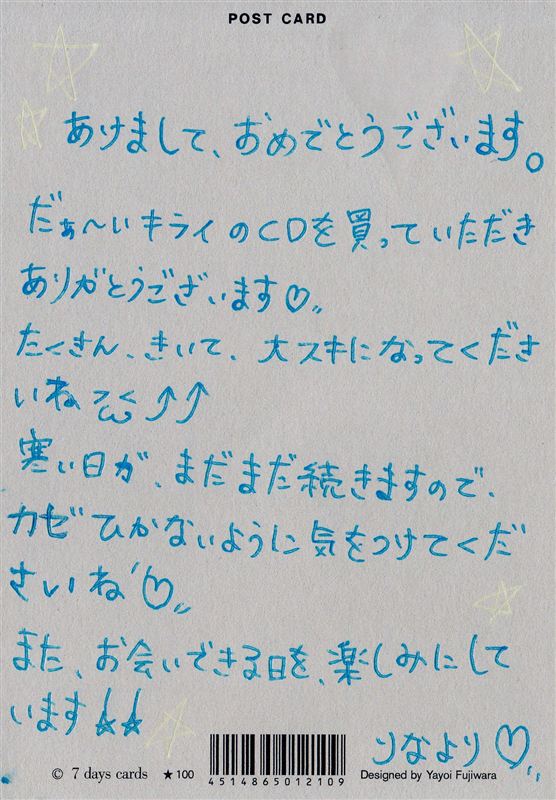 POST CARD
あけまして、おめでとうございます。
だぁ〜いキライのCDを買っていただき
ありがとうございます♡〃
たくさん、きいて、大スキになってくださ
いね ⤴⤴
寒い日が、まだまだ続きますので、
カゼひかないように気をつけてくだ
さいね♡〃
また、お会いできる日を、楽しみにして
います☆☆
りなより♡〃
© 7 days cards ★100 4514865012109 Designed by Yayoi Fujiwara